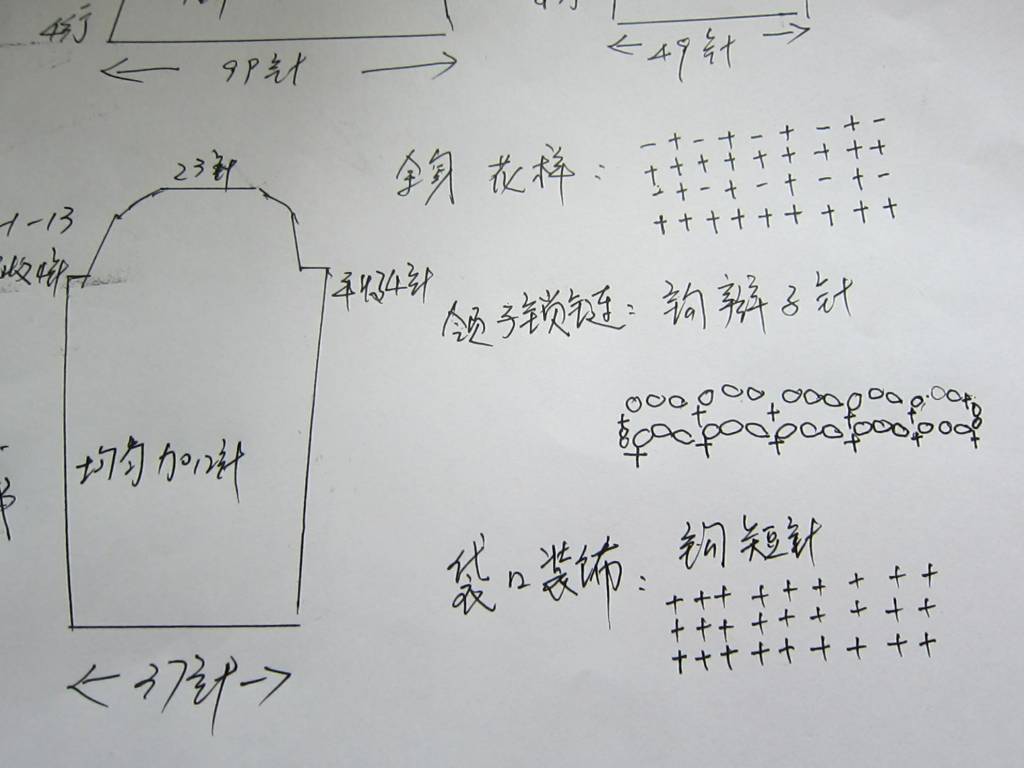 4行
99针
49针
23针
1-13
收4针
平收4针
均匀加12针
37针
全身花样:
- + - + - + - + -
+ + + + + + + + +
- + - + - + - + -
+ + + + + + + + +
领子锁链: 钩辫子针
袋口装饰: 钩短针
+ + + + + + + + +
+ + + + + + + + +
+ + + + + + + + +